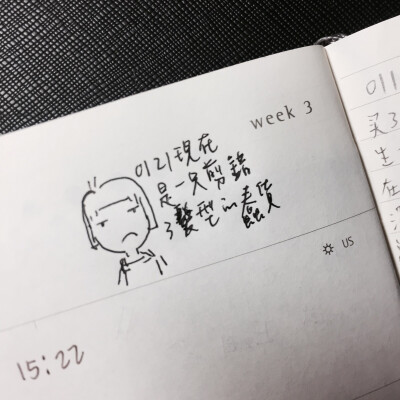 week 3
0121現在
是一只剪錯
了髮型in蠢貨
US
15:22
011
买了
生
在